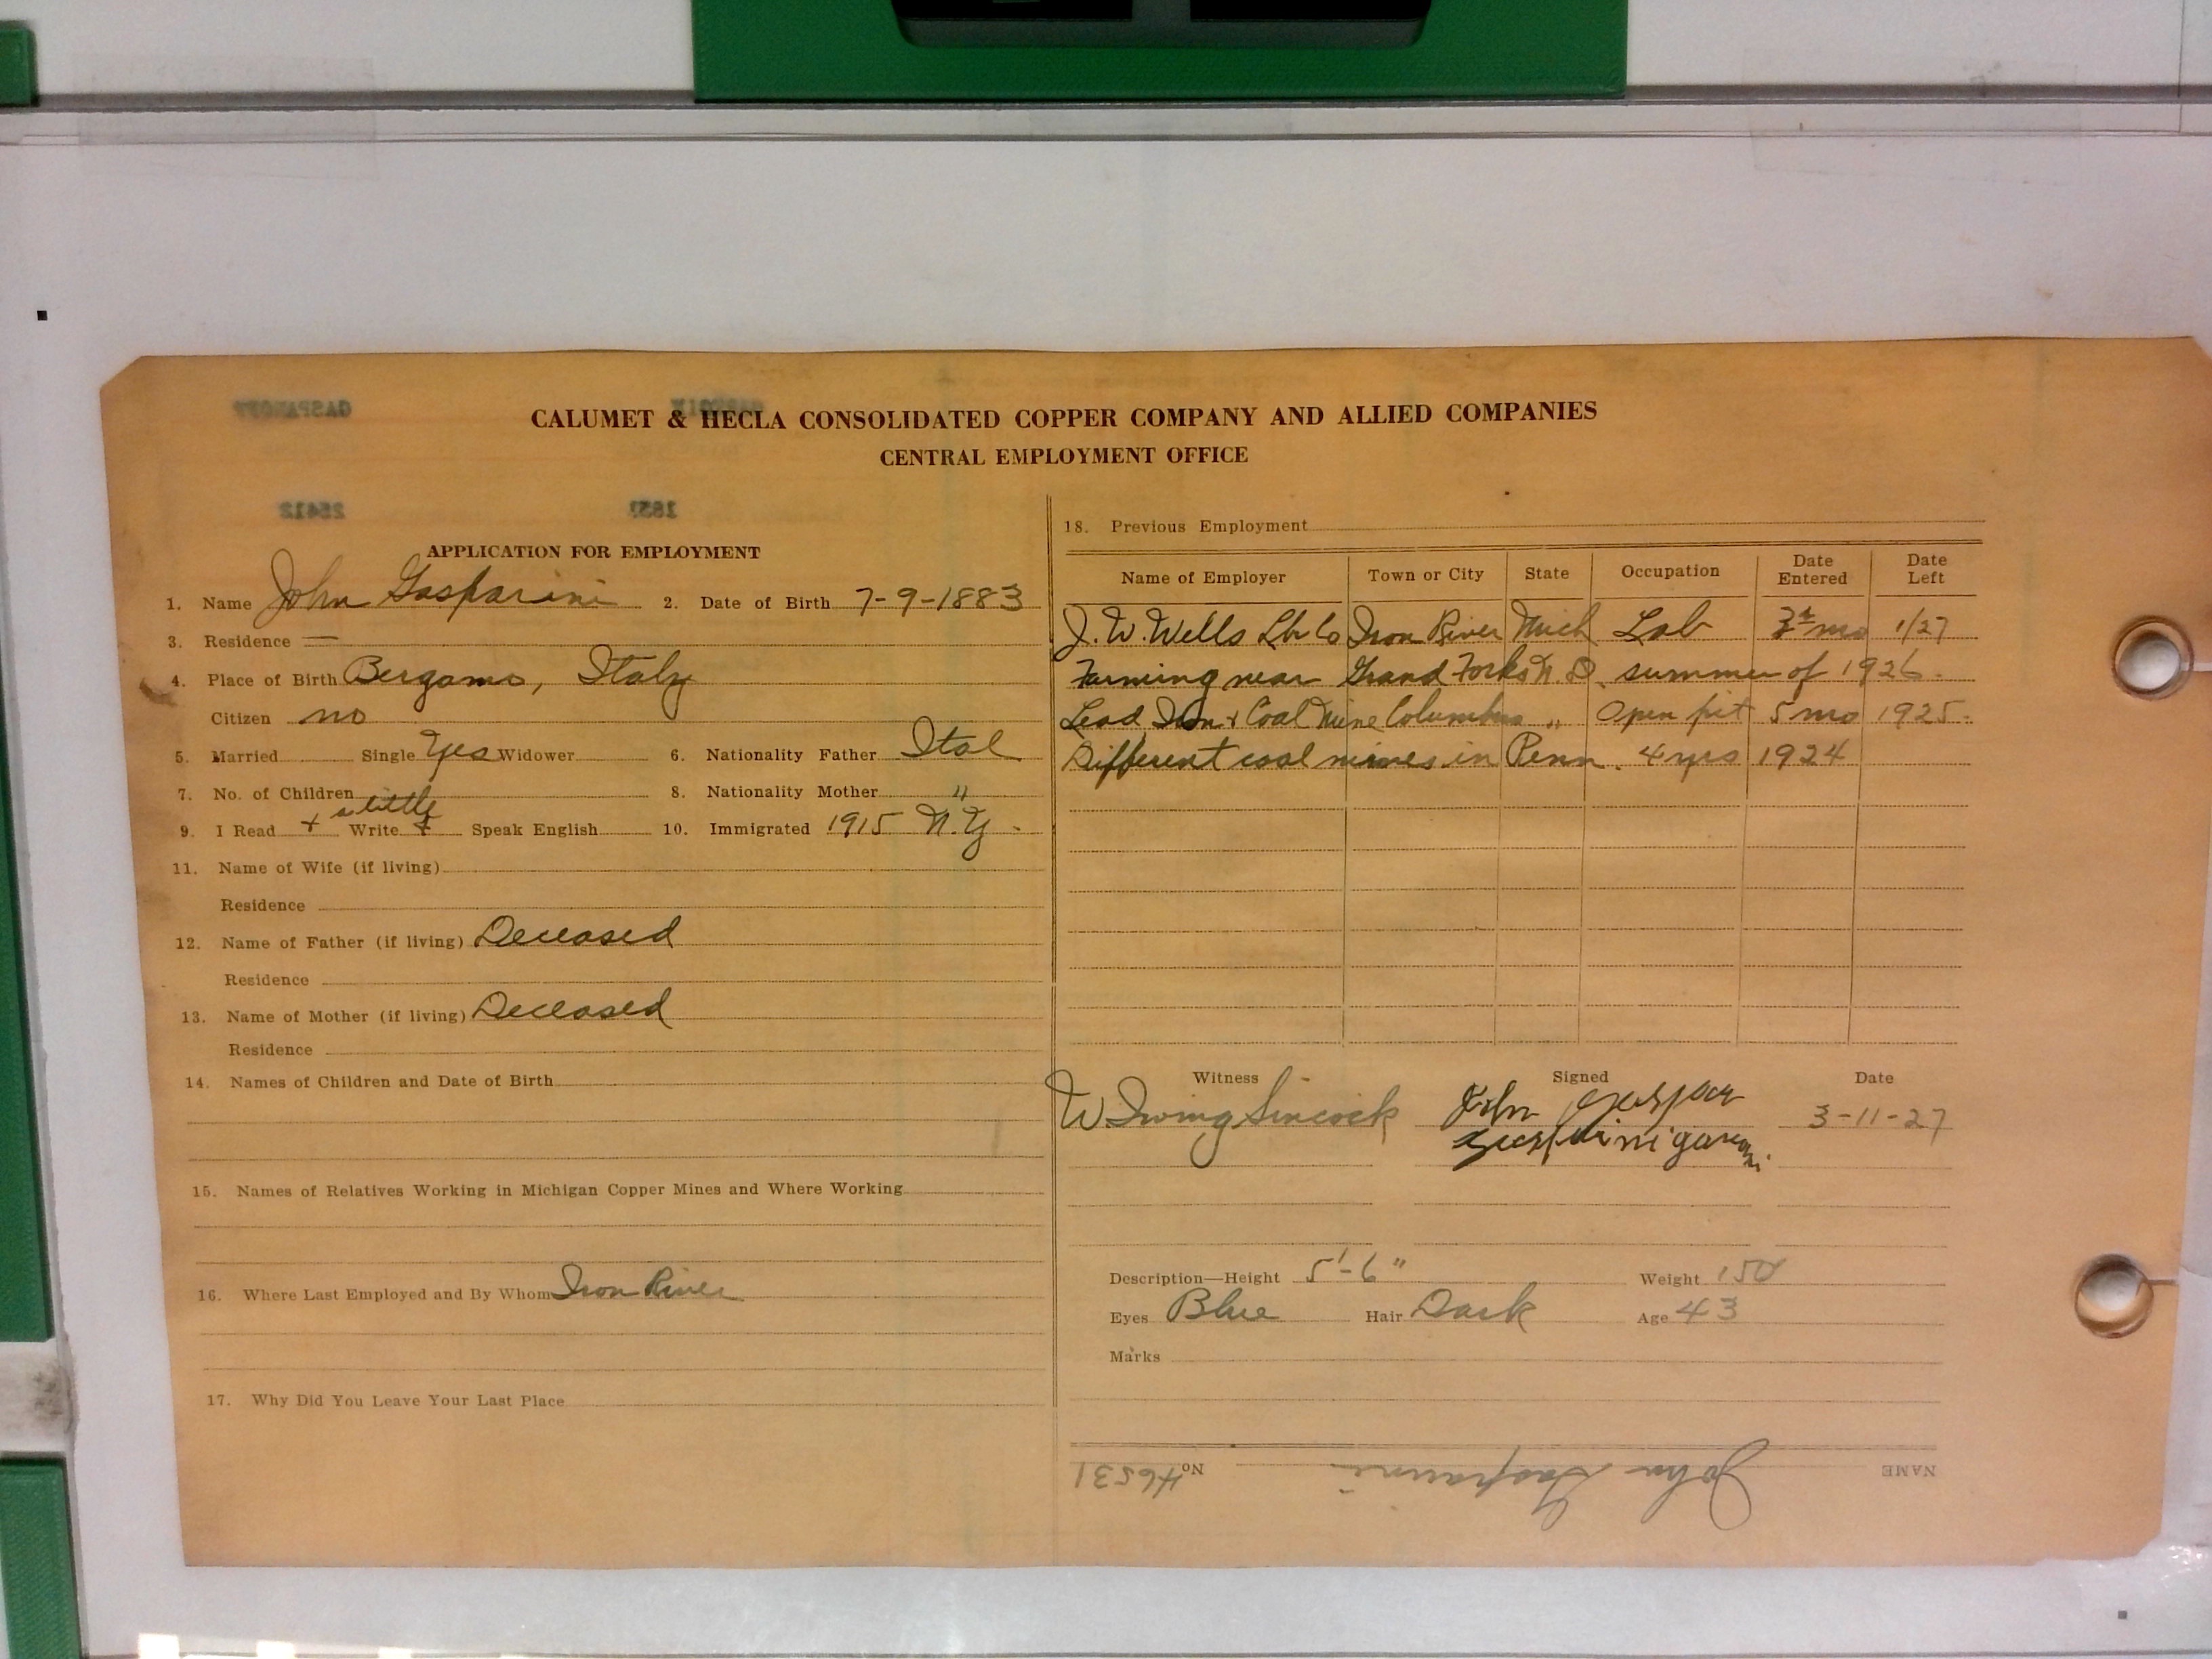 CALUMET & HECLA CONSOLIDATED COPPER COMPANY AND ALLIED COMPANIES
CENTRAL EMPLOYMENT OFFICE
APPLICATION FOR EMPLOYMENT
1. Name John Gasparini 2. Date of Birth 7-9-1883
3. Residence
4. Place of Birth Bergamo, Italy
Citizen no
5. Married Single Yes Widower 6. Nationality Father Ital
7. No. of Children 8. Nationality Mother "
a little
9. I Read + Write + Speak English 10. Immigrated 1915 N.Y.
11. Name of Wife (if living)
Residence
12. Name of Father (if living) Deceased
Residence
13. Name of Mother (if living) Deceased
Residence
14. Names of Children and Date of Birth
15. Names of Relatives Working in Michigan Copper Mines and Where Working
16. Where Last Employed and By Whom Iron River
17. Why Did You Leave Your Last Place
18. Previous Employment
Name of Employer Town or City State Occupation Date Entered Date Left
J. W. Wells Lbr Co Iron River Mich Lab mo 1/27
Farming near Grand Forks N. D. summer of 1926.
Lead Iron + Coal Mine Columbus " Open pit 5 mo 1925.
Different coal mines in Penn. 4 yrs 1924
Witness Signed Date
W. Irving Sincock John 3-11-27
Description—Height 5'-6" Weight 150
Eyes Blue Hair Dark Age 43
Marks
NAME John Gasparini No. 46531